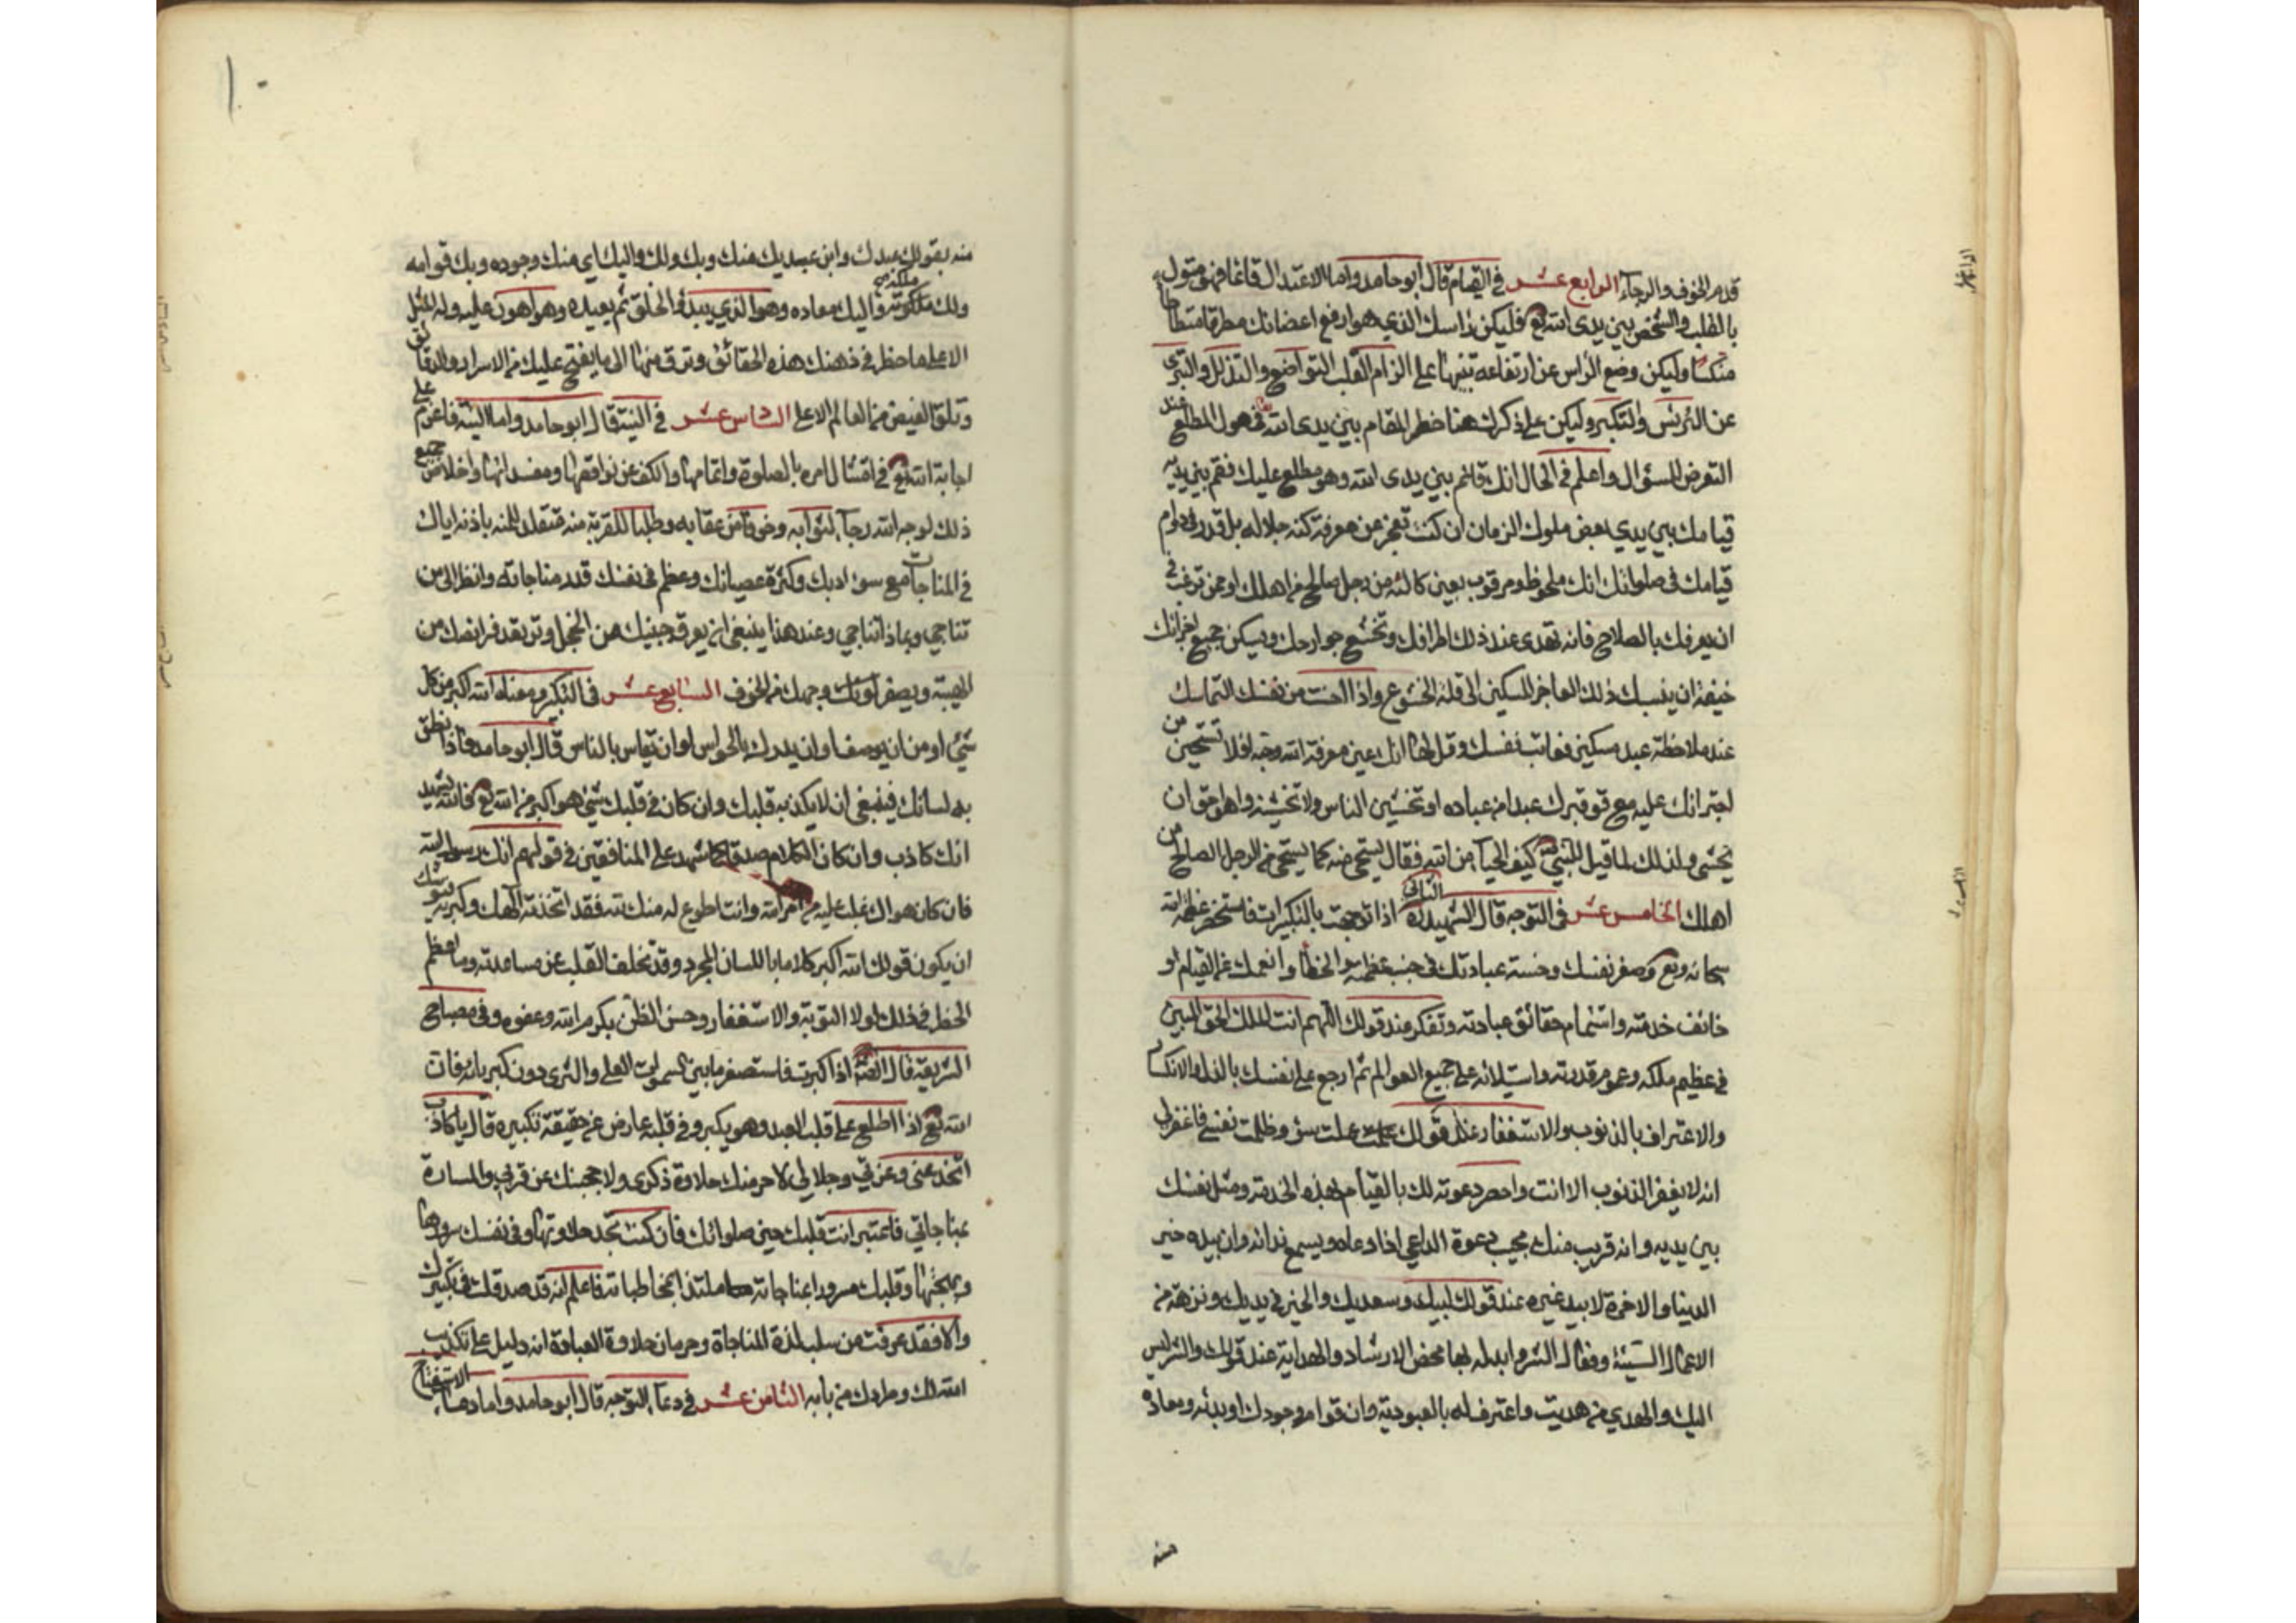 قدم الخوف والرجآء الرابع عشر في القيام قال ابو حامد واما الاعتدال قائما فهو مثول
بالقلب والشخص بين يدي الله تع فليكن راسك الذي هو ارفع اعضائك مطرقا متطاطا
منكسا وليكن وضع الراس عن ارتفاعه تنبيها على الزام القلب التواضع والتذلل والتبري
عن الترئس والتكبر وليكن على ذكرك هنا خطر المقام بين يدي الله في هول المطلع عند
التعرض للسؤال واعلم في الحال انك قائم بين يدى الله وهو مطلع عليك فقم بين يديه
قيامك بين يدي بعض ملوك الزمان ان كنت تعجز عن معرفة كنه جلاله بل قدر في دوام
قيامك في صلواتك انك ملحوظ ومرقوب بعين كالئه من رجل صالح من اهلك او ممن ترغب في
ان يعرفك بالصلاح فانه تهدى عند ذلك اطرافك وتخشع جوارحك ويسكن جميع اجزائك
خيفة ان ينسبك ذلك العاجز المسكين الى قلة الخشوع واذا احست من نفسك التماسك
عند ملاحظة عبد مسكين فعاتب نفسك وقل لها انك عين معرفة الله وحبه افلا تستحين من
اجترائك عليه مع توقيرك عبدا من عباده او تخشين الناس ولا تخشيه واهو حق ان
يخشى ولذلك لما قيل للنبي كيف الحيآء من الله فقال يستحى منه كما يستحى من الرجل الصالح من
اهلك الخامس عشر في التوجه قال الشهيد الثاني اذا توجهت بالتكبيرات فاستحضر عظمة الله
سبحانه وتع وصغر نفسك وخسة عبادتك في جنب عظمته وانحطاط همك عن القيام او
خائف خدمته واستمام حقائق عبادته وتفكر عند قولك اللهم انت الملك الحق المبين
في عظيم ملكه وعموم قدرته واستيلائه على جميع العوالم ثم ارجع على نفسك بالذل والانكسار
والاعتراف بالذنوب والاستغفار عند قولك عملت سوء وظلمت نفسي فاغفرلي
انه لا يغفر الذنوب الا انت واحضر دعوته لك بالقيام بهذه الخدمة ومثل نفسك
بين يديه وانه قريب منك مجيب دعوة الداعي اذا دعاه ويسمع ندائه وان بيده خير
الدنيا والاخرة لا بيد غيره عند قولك لبيك وسعديك والخير في يديك ونزهه من
الاعمال السيئة وفعال الشر وابدله بها محض الارشاد والهداية عند قولك والشر ليس
اليك والمهدي من هديت واعترف له بالعبودية وان قوام وجودك وبدئه ومعاده
منه
١٠
منه بقولك عبدك وابن عبديك منك وبك ولك واليك اي منك وجوده وبك قوامه
ولك ملكه واليك معاده وهو الذي يبدؤ الخلق ثم يعيده وهو اهون عليه وله المثل
الاعلى فاحظر في ذهنك هذه الحقائق وترق منها الى ما يفتح عليك من الاسرار والدقائق
وتلق الفيض من العالم الاعلى السادس عشر في النية قال ابو حامد واما النية فاعزم على
اجابة الله تع في امتثال امره بالصلوة واتمامها والكف عن نواقضها ومفسداتها واخلاص جميع
ذلك لوجه الله رجآء لثوابه وخوفا من عقابه وطلبا للقربة منه متقلدا للمنه باذنه اياك
في المناجات مع سوء ادبك وكثرة عصيانك وعظم في نفسك قدر مناجاته وانظر الى من
تناجي وبماذا تناجي وعند هذا ينبغي ان يعرق جبينك من الخجل وترتعد فرايصك من
الهيبة ويصفر لونك وجهك من الخوف السابع عشر في التكبير ومعناه الله اكبر من كل
شئ او من ان يوصف او ان يدرك بالحواس او ان يقاس بالناس قال ابو حامد فاذا نطق
به لسانك فينبغي ان لا يكذبه قلبك وان كان في قلبك شئ هو اكبر من الله تع فالله يشهد
انك كاذب وان كان الكلام صدقا كما شهد على المنافقين في قولهم انك رسول الله
فان كان هواك اغلب عليك من امر الله وانت اطوع له منك لله فقد اتخذته الهك وكبرته فيوشك
ان يكون قولك الله اكبر كلاما باللسان المجرد وقد تخلف القلب عن مساعدته وما اعظم
الخطر في ذلك لولا التوبة والاستغفار وحسن الظن بكرم الله وعفوه وفي مصباح
الشريعة قال الصادق اذا كبرت فاستصغر ما بين السموات العلى والثرى دون كبريائه فان
الله تع اذا اطلع على قلب العبد وهو يكبر وفي قلبه عارض عن حقيقة تكبيره قال يا كاذب
اتخدعني وعزتي وجلالي لاحرمنك حلاوة ذكرى ولاحجبنك عن قربي والمسارة
بمناجاتي فاعتبر انت قلبك حين صلواتك فان كنت تجد حلاوتها وفي نفسك سرورها
وبهجتها وقلبك مسرورا بمناجاته ملتذا بمخاطباته فاعلم انه قد صدقك في تكبيرك
والا فقد عرفت من سلب لذة المناجاة وحرمان حلاوة العبادة انه دليل على تكذيب
الله لك وطردك من بابه الثامن عشر في دعآء التوجه قال ابو حامد واما دعاء الاستفتاح